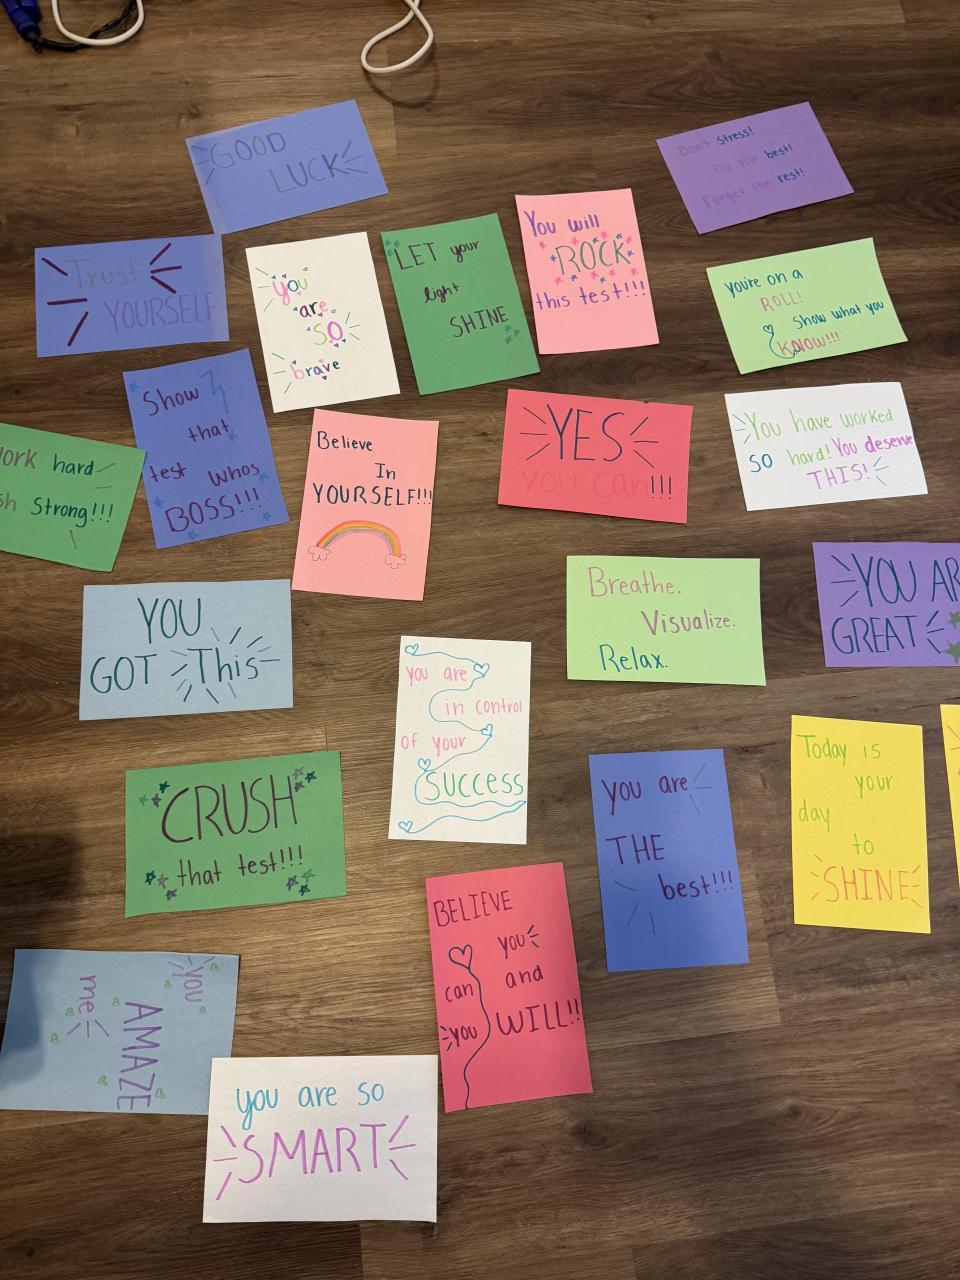 GOOD
LUCK
Don't stress!
Do your best!
Forget the rest!
Trust
YOURSELF
you
are
SO
brave
LET your
light
SHINE
You will
ROCK
this test!!!
you're on a
ROLL!
Show what you
Know!!!
Show
that
test whos
BOSS!!!
hard
Strong!!!
Believe
In
YOURSELF!!!
YES
you can!!!
You have worked
so hard! You deserve
THIS!
YOU
GOT This
Breathe.
Visualize.
Relax.
YOU
GREAT
you are
in control
of your
SUCCESS
CRUSH
that test!!!
you are
THE
best!!!
Today is
your
day
to
SHINE
BELIEVE
you
can and
you WILL!!
you
AMAZE
me
you are so
SMART